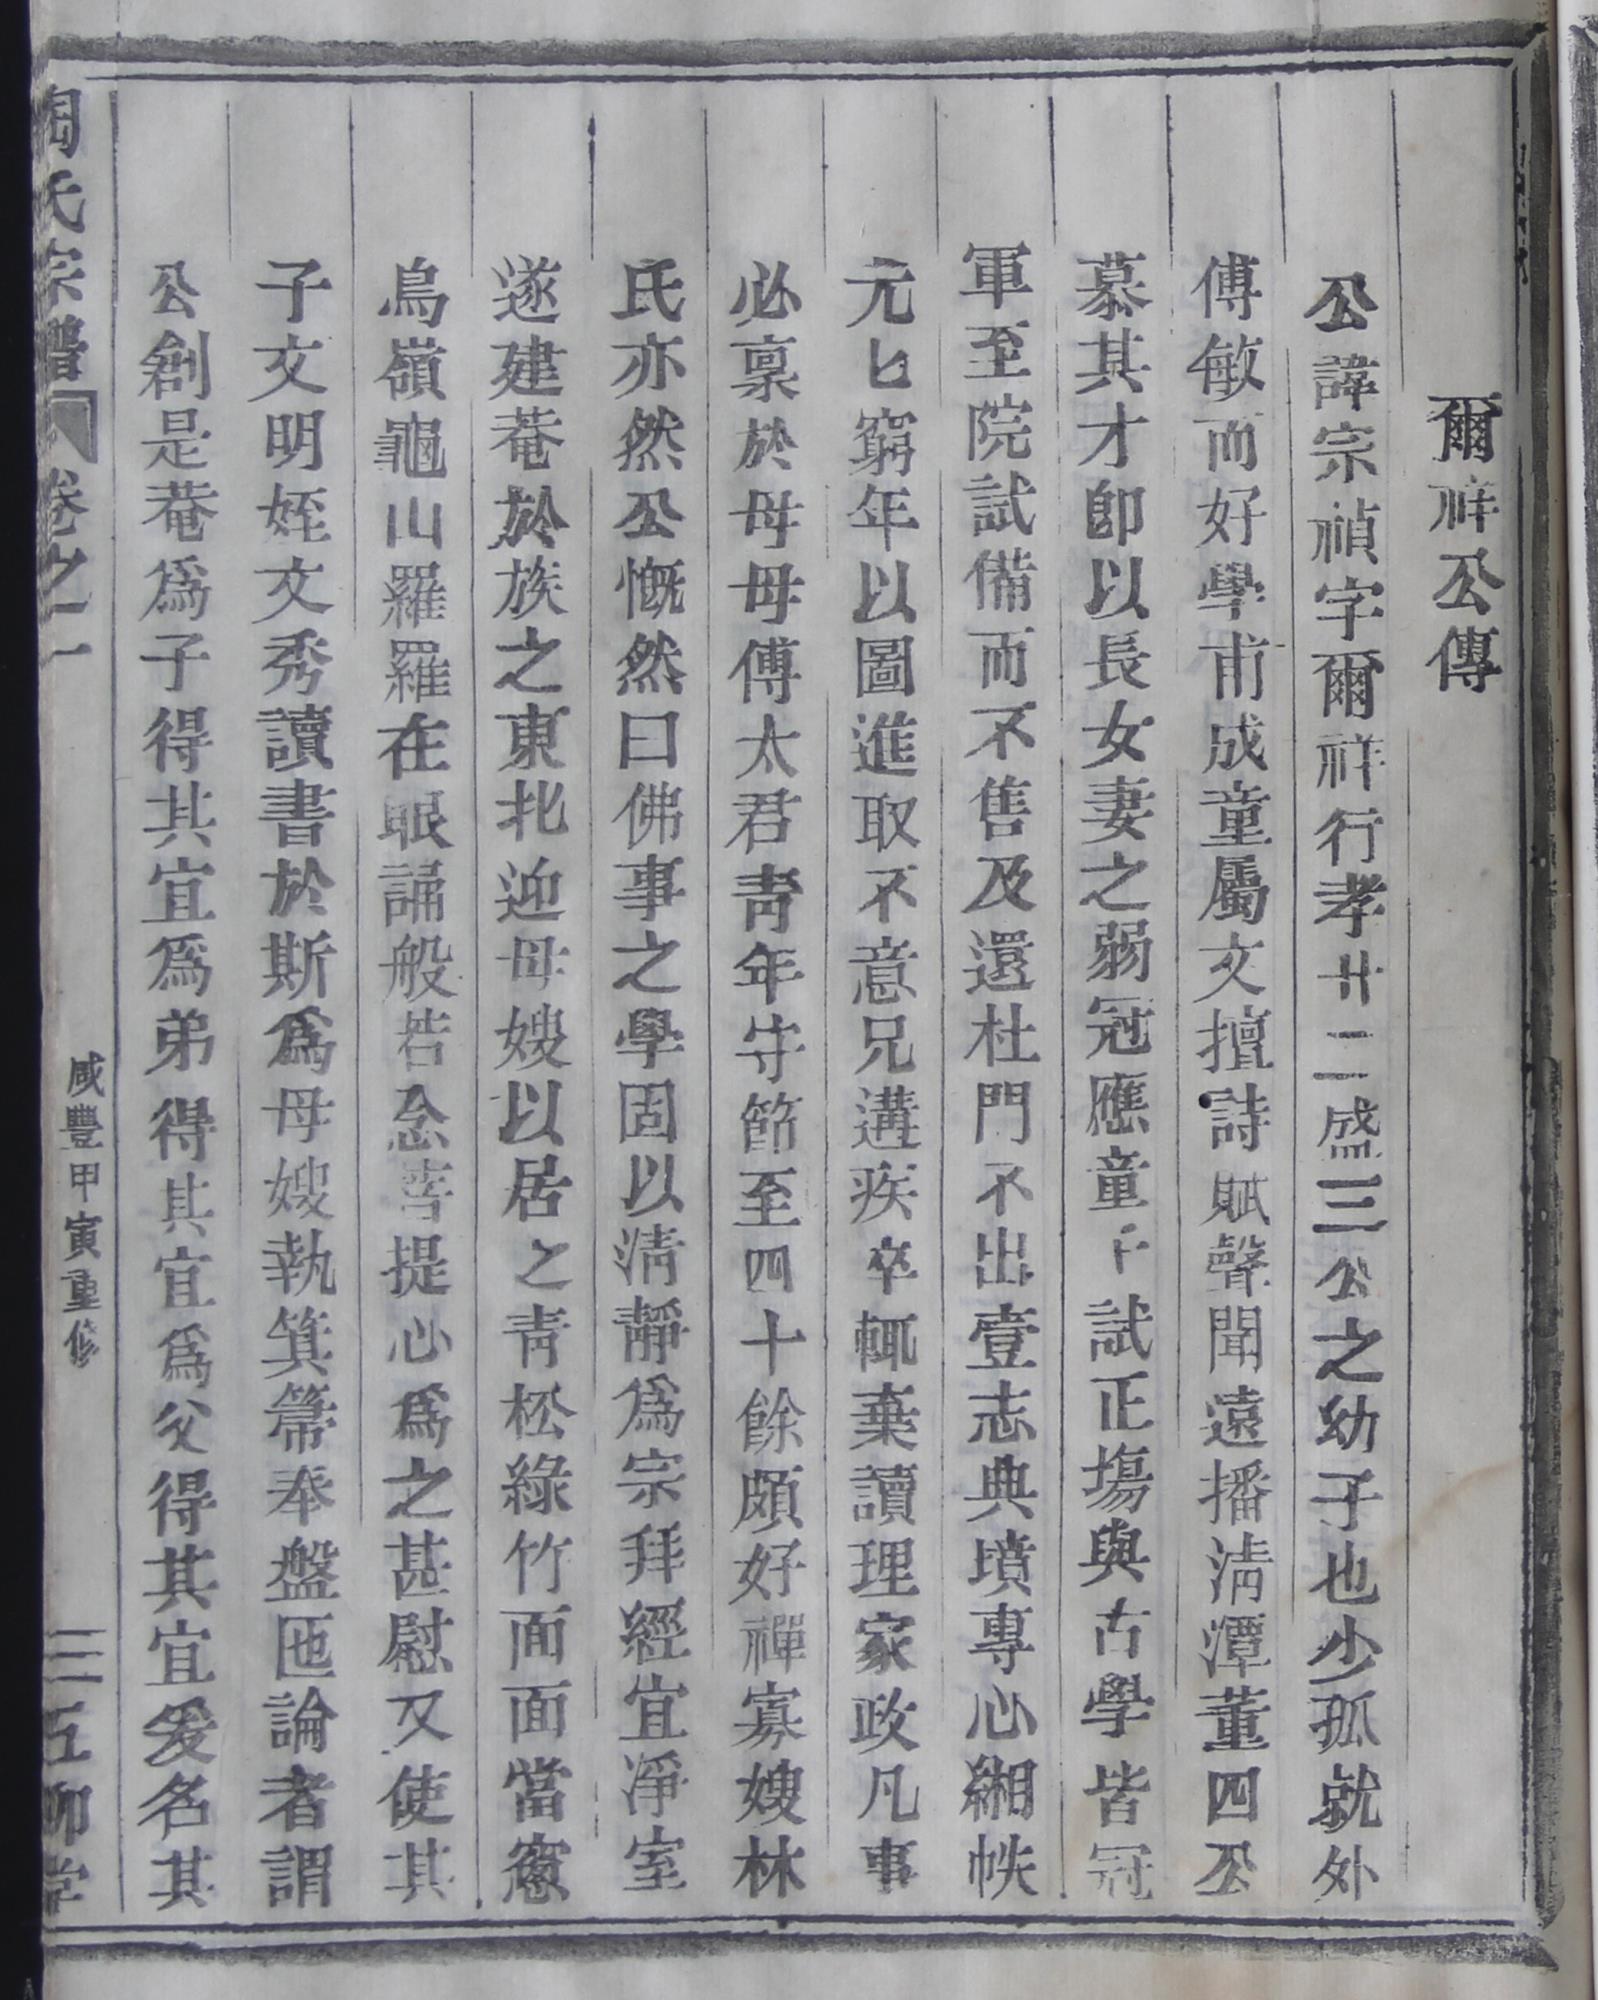 爾祥公傳
公諱宗禎字爾祥行孝廿二盛三公之幼子也少孤就外
傅敏而好學甫成童屬文擅詩賦聲聞遠播淸潭董四公
慕其才卽以長女妻之弱冠應童子試正塲與古學皆冠
軍至院試備而不售及還杜門不出壹志典墳專心緗帙
兀匕窮年以圖進取不意兄遘疾卒輒棄讀理家政凡事
必稟於母母傅太君靑年守節至四十餘頗好禪寡嫂林
氏亦然公慨然曰佛事之學固以淸靜爲宗拜經宜凈室
遂建菴於族之東北迎母嫂以居之青松綠竹面面當窻
鳥嶺龜山羅羅在眼誦般若念菩提心爲之甚慰又使其
子文明姪文秀讀書於斯爲母嫂執箕箒奉盤匜論者謂
公創是菴爲子得其宜爲弟得其宜爲父得其宜爰名其
陶氏宗譜 卷之一 咸豐甲寅重修 三 五柳堂